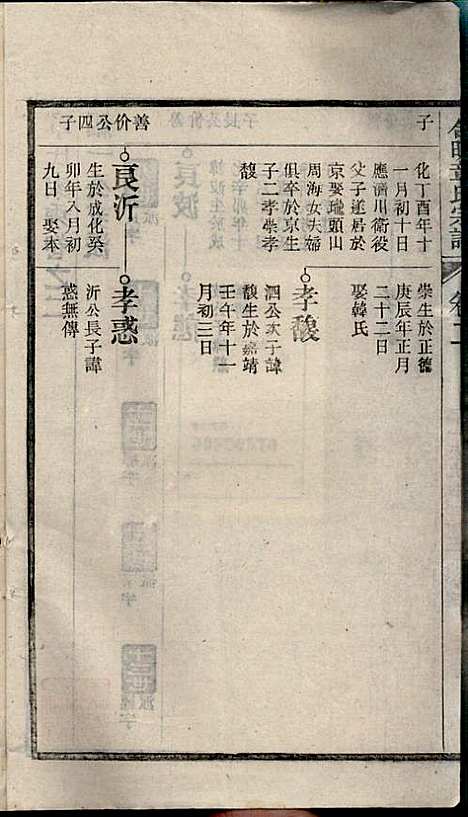 章氏宗譜
卷二
子
化丁酉年十
一月初十日
應濟川衛役
父子遂居於
京娶瓏頭山
周海女夫婦
俱卒於京生
子二孝崇孝
馥
崇生於正德
庚辰年正月
二十二日
娶韓氏
孝馥
泗公次子諱
馥生於嘉靖
壬午年十一
月初三日
善价公四子
良沂
生於成化癸
卯年八月初
九日 娶本
孝惑
沂公長子諱
惑無傳